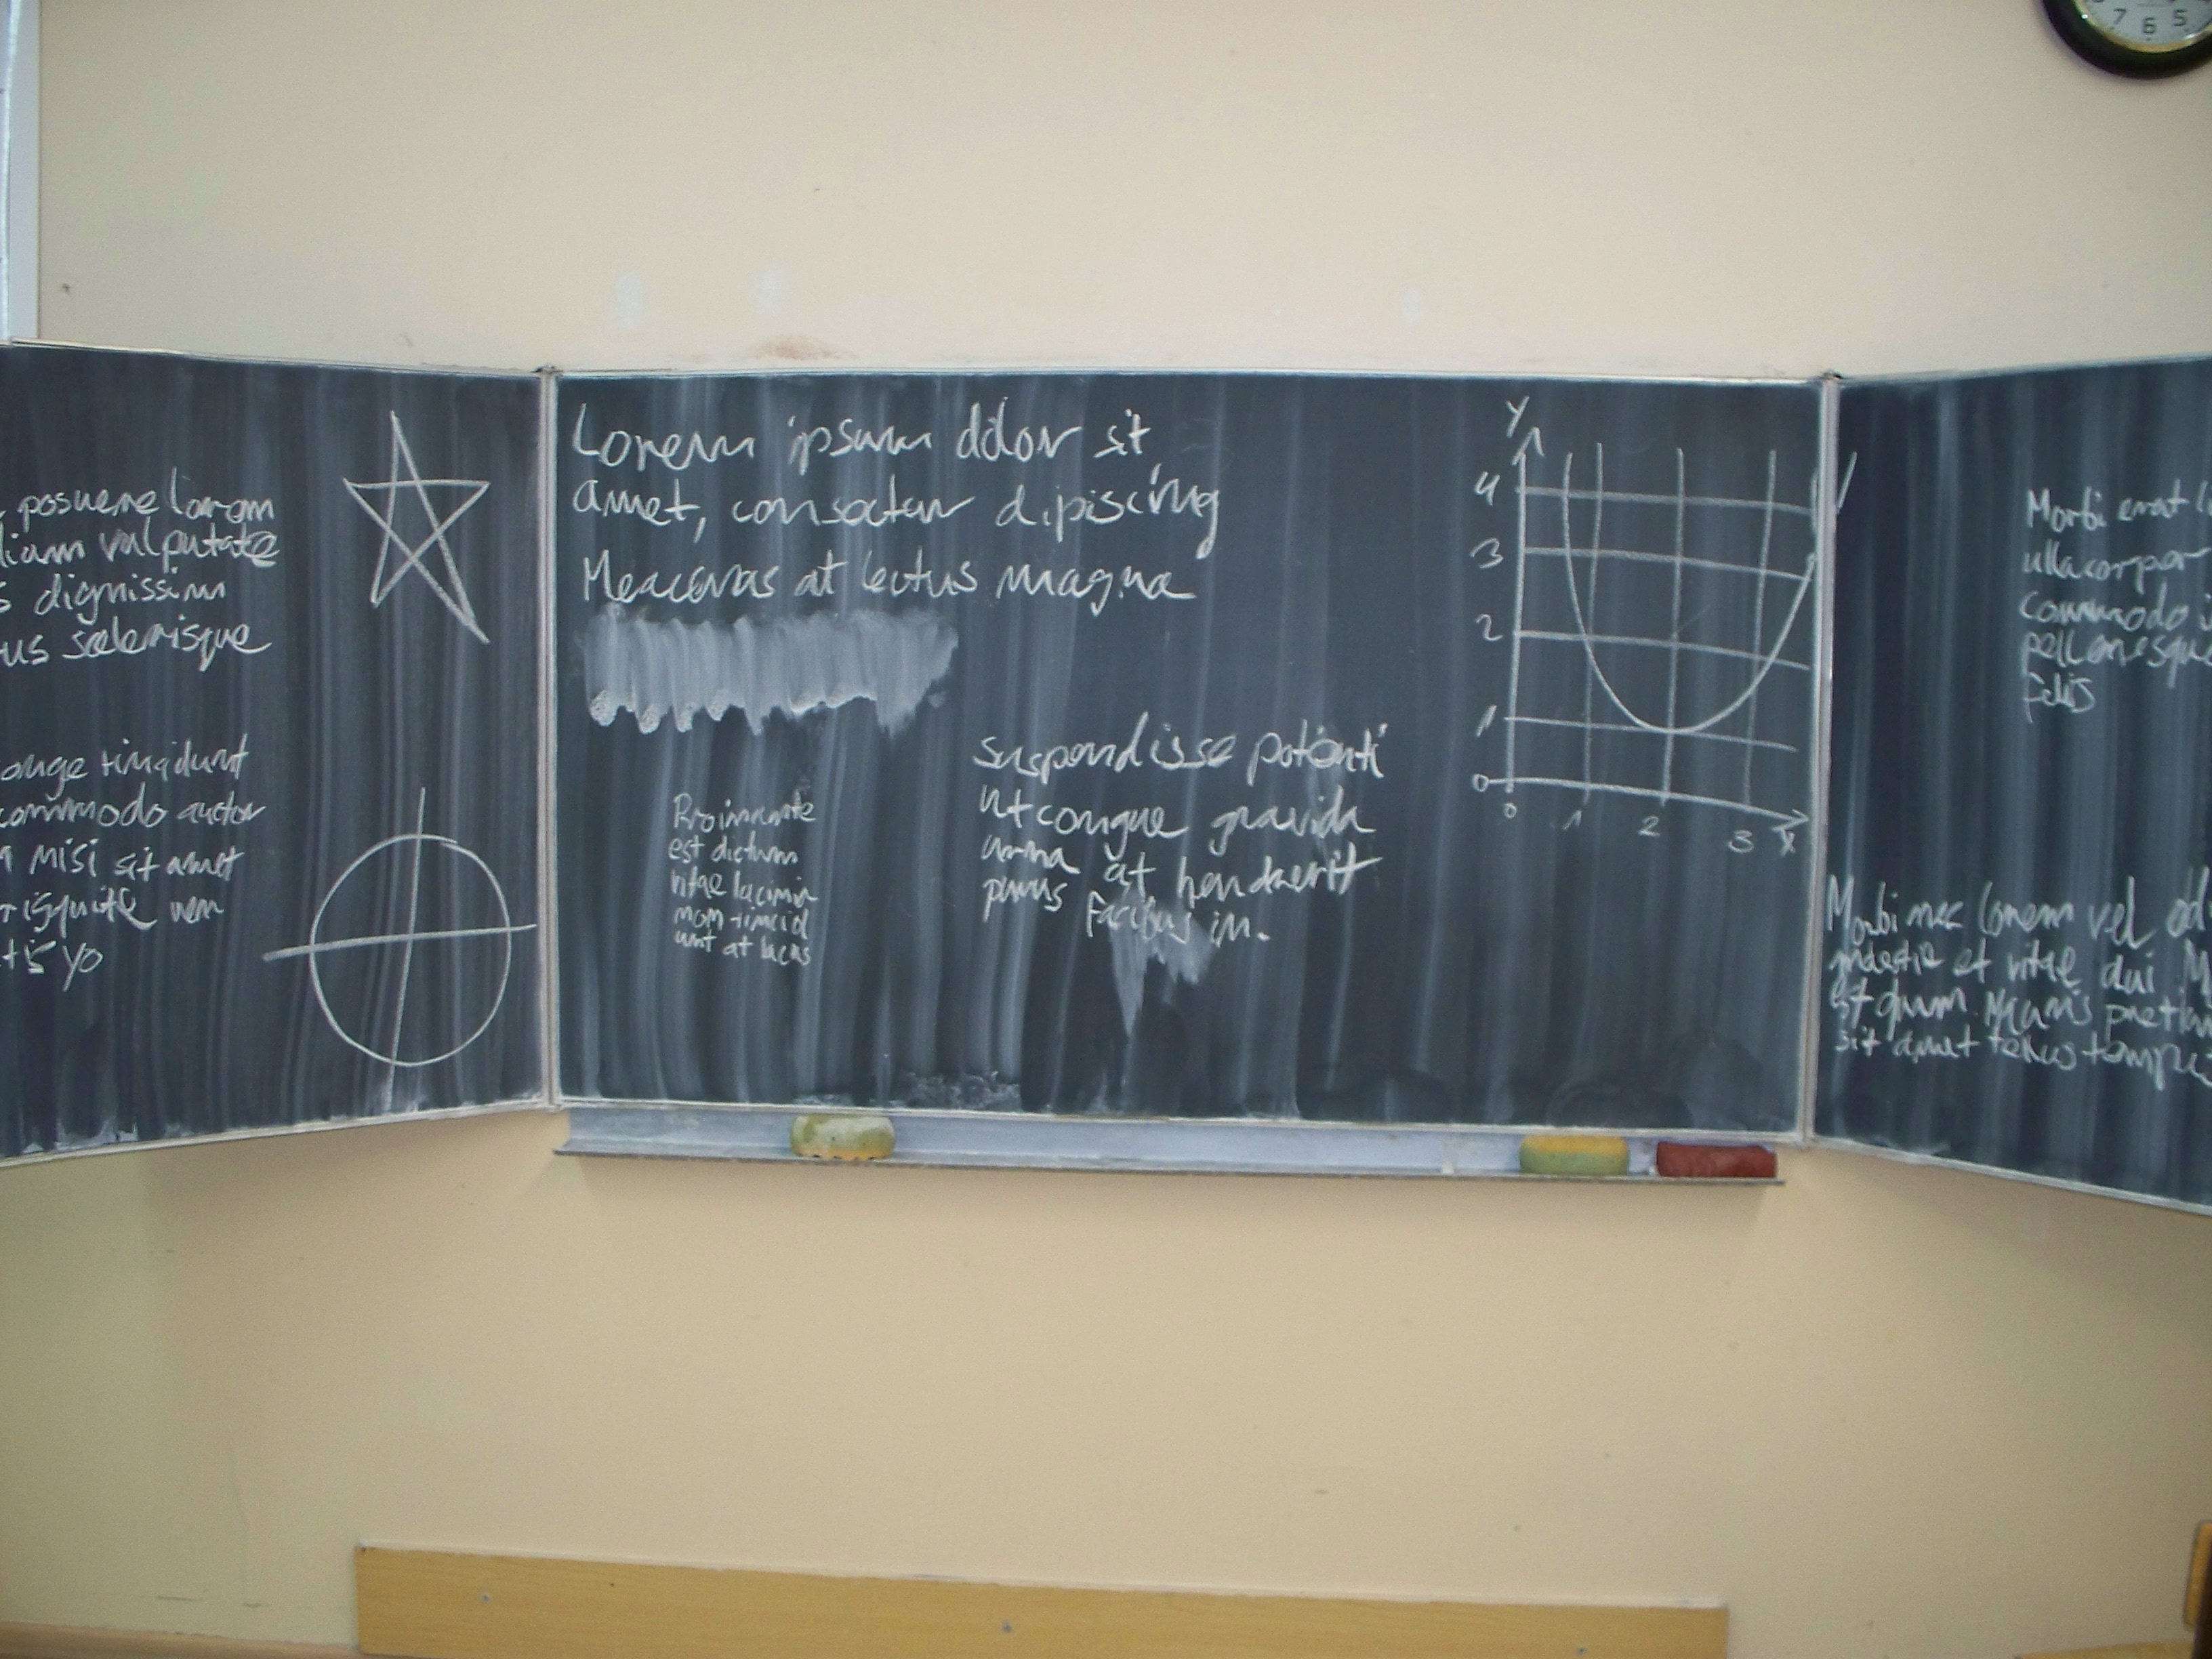 posuere lorem
diam vulputate
s dignissim
us scelerisque
onge tincidunt
commodo auctor
n misi sit amet
nem
yo
Lorem ipsum dolor sit
amet, consoctur dipiscing
Meacenas at lectus magna
Proin ante
est dictum
vitae lacinia
mom tincid
unt at lacus
suspendisse potenti
ut congue gravida
urna at hendrerit
purus facibus in.
Y
4
3
2
1
0
0 1 2 3 X
Morbi erat
ullacorpor
commodo
pellenesque
felis
Morbi nec lorem vel od
molestie et vitae dui M
est qium. Mauris pretiu
sit amet tellus tempu
7 6 5